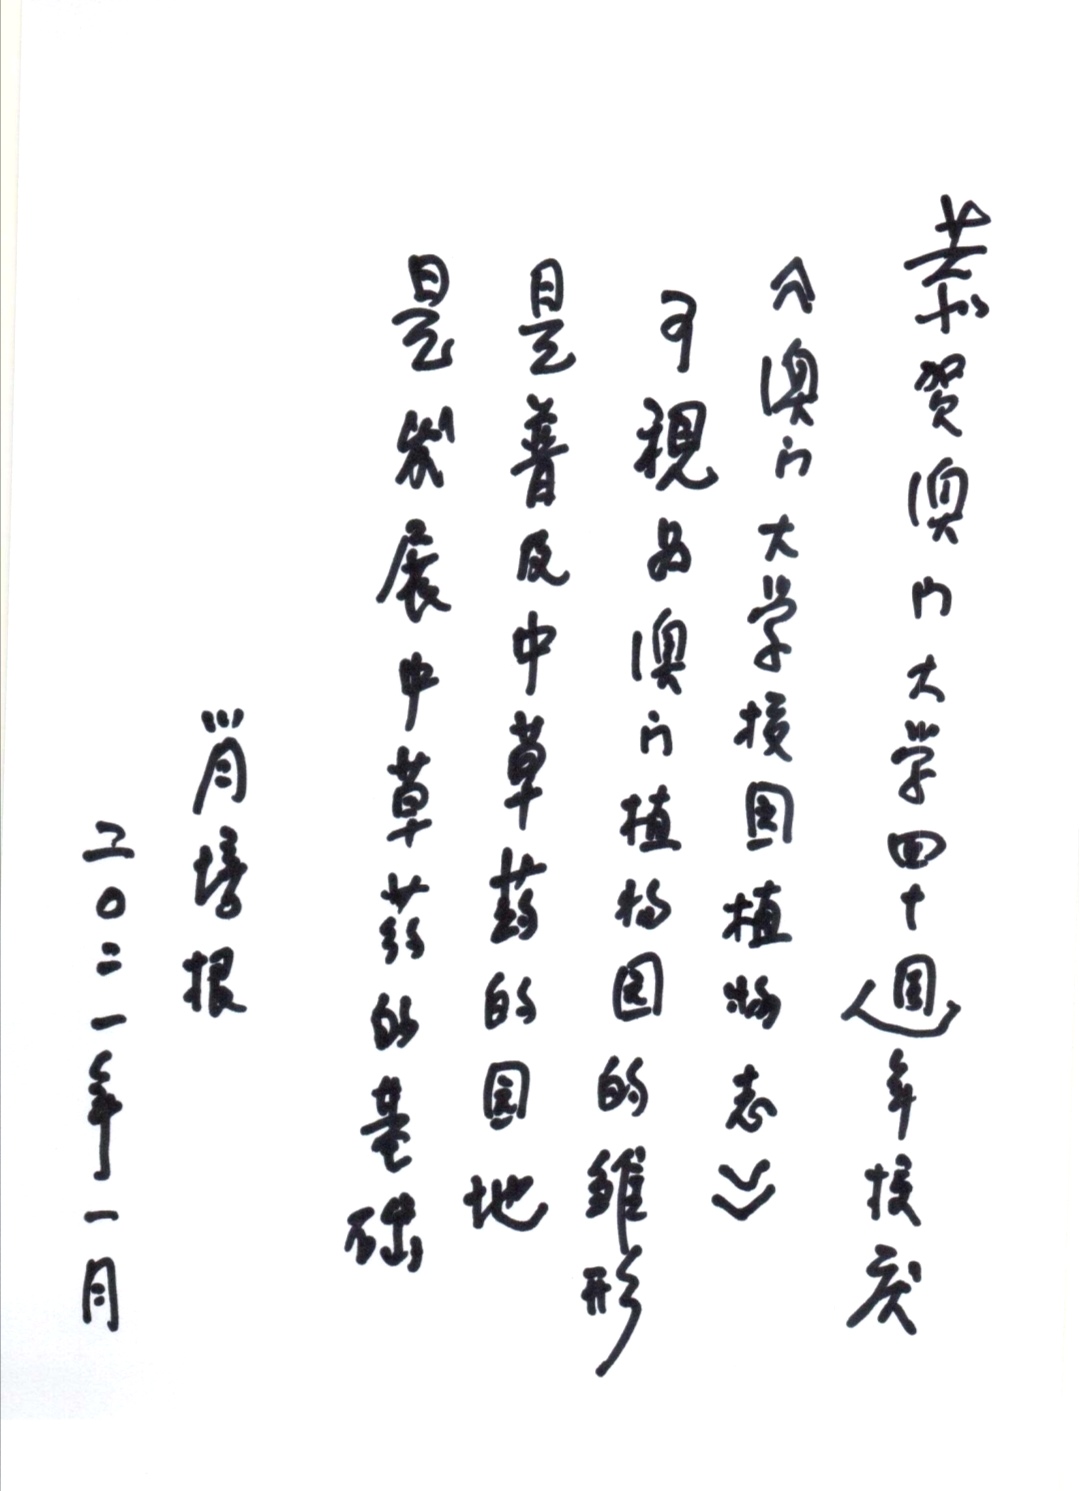 恭贺澳门大学四十週年校庆
《澳门大学校园植物志》
可视为澳门植物园的雏形
是普及中草药的园地
是发展中草药的基础
肖培根
二〇二一年一月